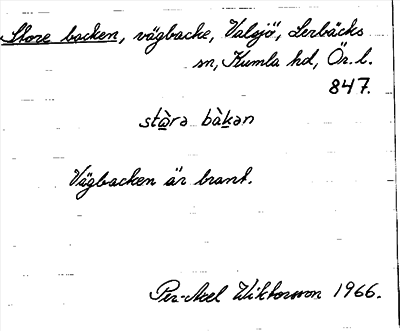 Store backen, vägbacke, Valsjö, Lerbäcks
sn, Kumla hd, Ör. l.
847.
stɷ̀rə bàkən
Vägbacken är brant.
Per-Axel Wiktorsson 1966.